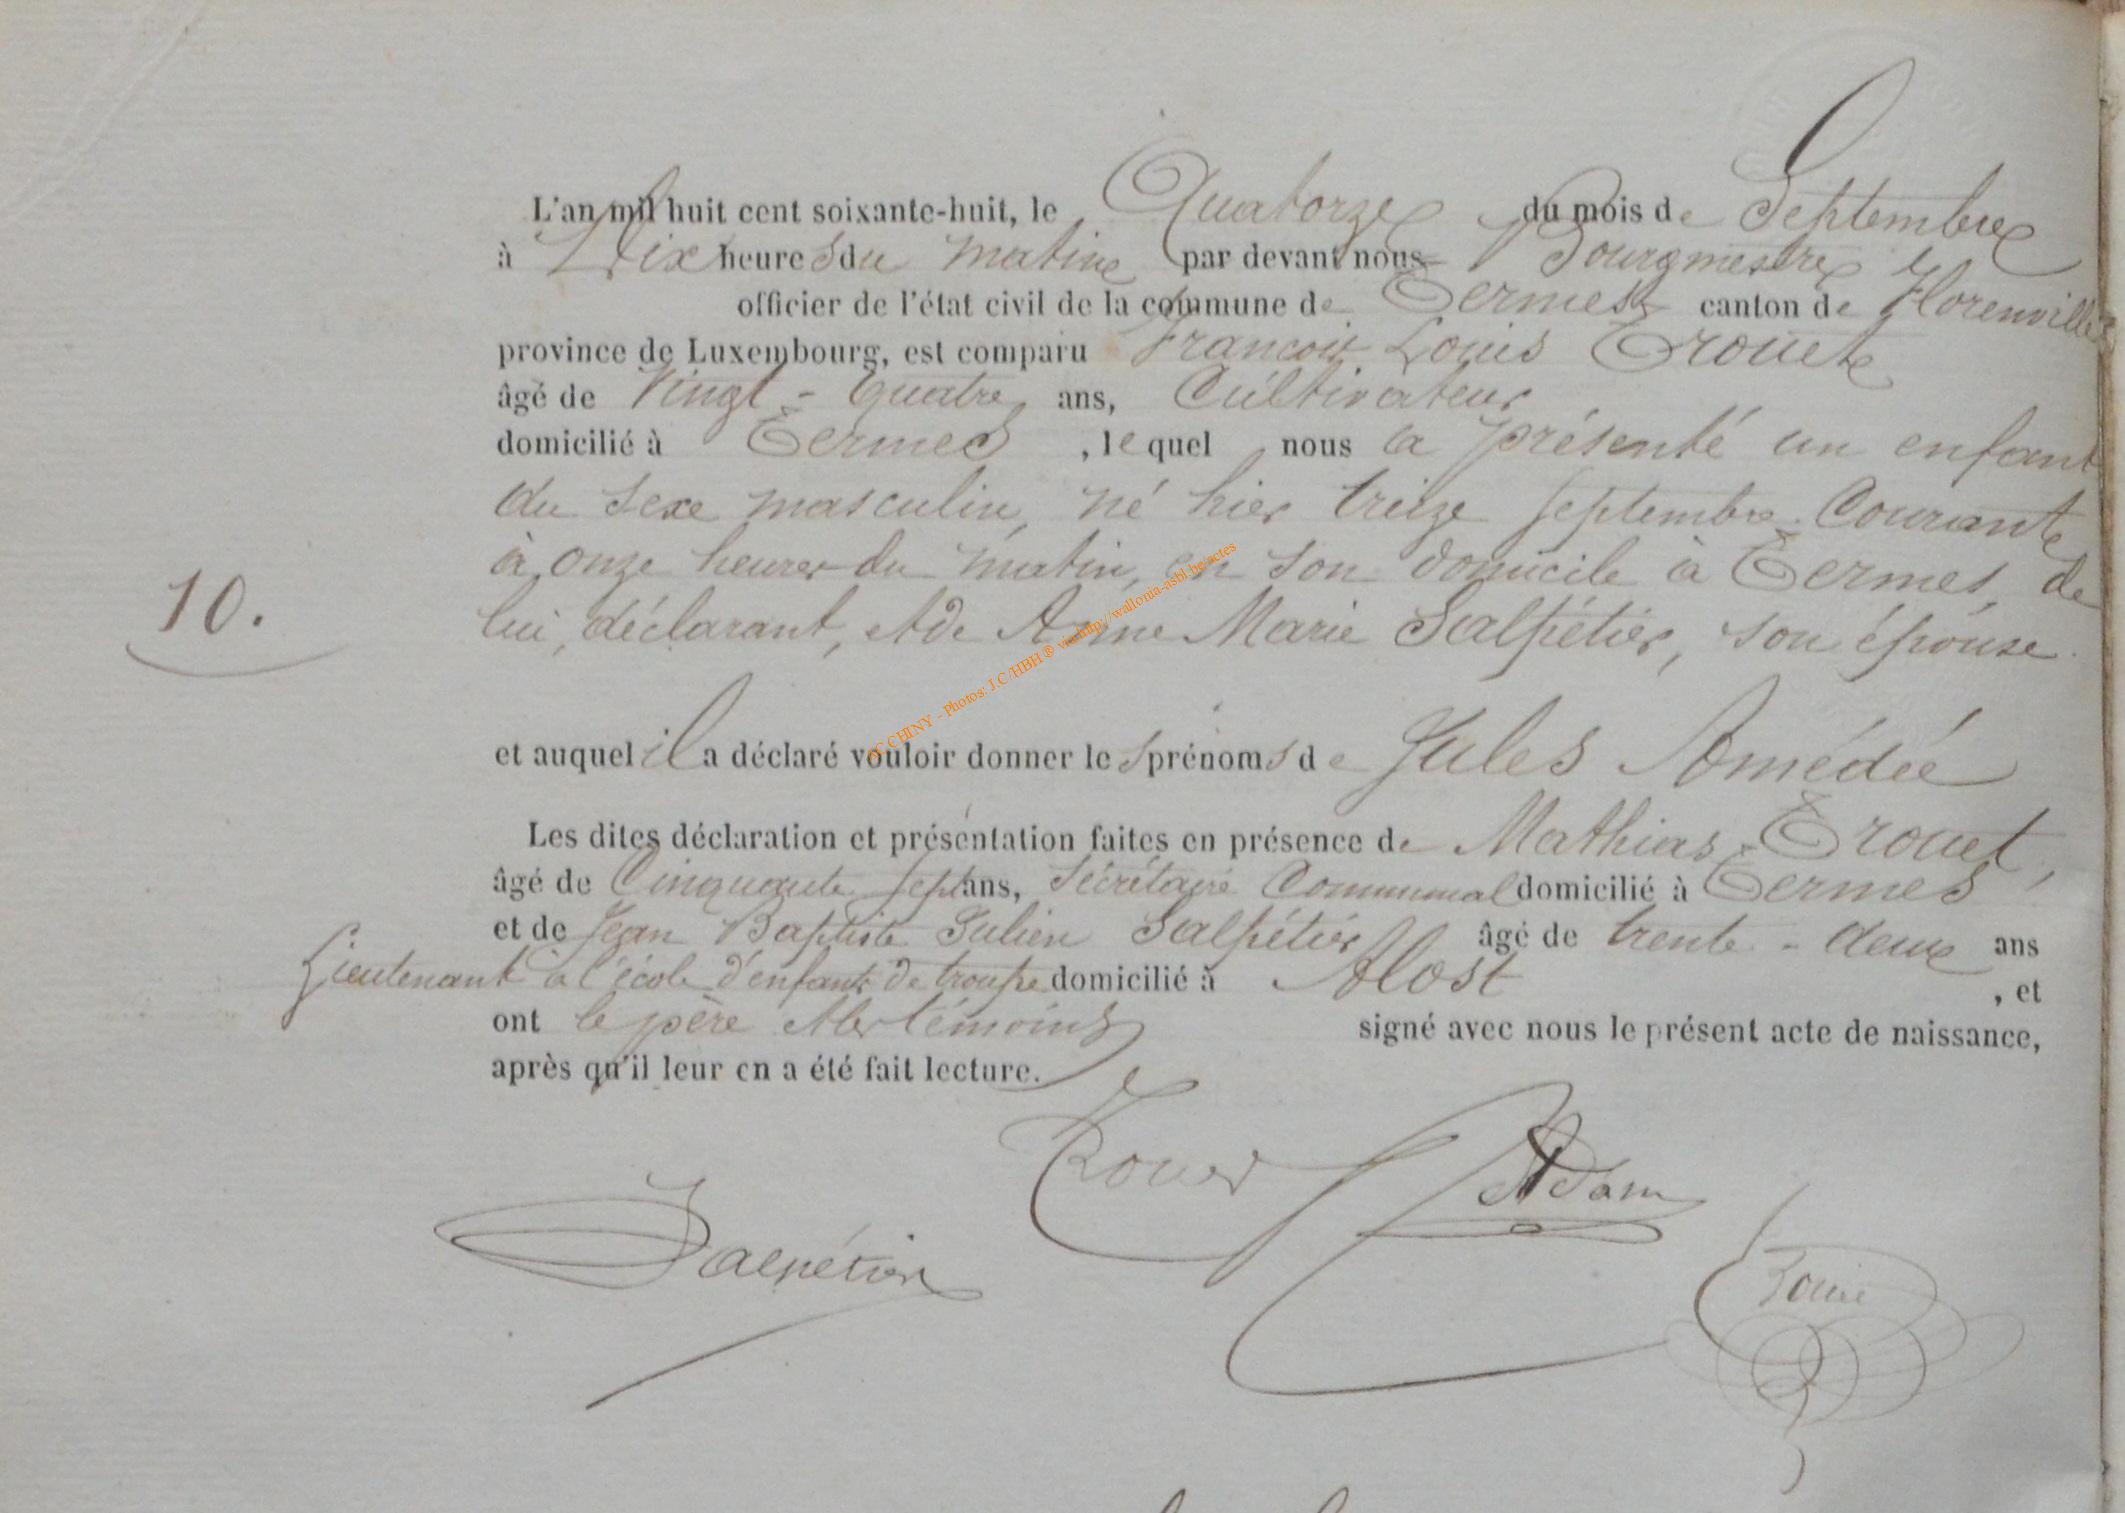 L'an mil huit cent soixante-huit, le Quatorze du mois de Septembre
à Dix heures du matin par devant nous Bourgmestre
officier de l'état civil de la commune de Termes canton de Florenville
province de Luxembourg, est comparu François Louis Trouet
âgé de Vingt-quatre ans, Cultivateur
domicilié à Termes, lequel nous a présenté un enfant
du sexe masculin, né hier treize septembre Courant
à onze heures du matin, en son domicile à Termes, de
10.
lui, déclarant, et de Anne Marie Salpétier, son épouse
et auquel il a déclaré vouloir donner les prénoms de Jules Amédée
Les dites déclaration et présentation faites en présence de Mathias Trouet,
âgé de Cinquante sept ans, Sécrétaire Communal domicilié à Termes,
et de Jean Baptiste Julien Salpétier âgé de trente-deux ans
Lieutenant à l'école d'enfants de troupe domicilié à Alost, et
ont le père et les témoins signé avec nous le présent acte de naissance,
après qu'il leur en a été fait lecture.
Trouet
Adam
Salpétier
AC CHINY - Photos: J.C/HBH ® via http://wallonia-asbl.be/actes